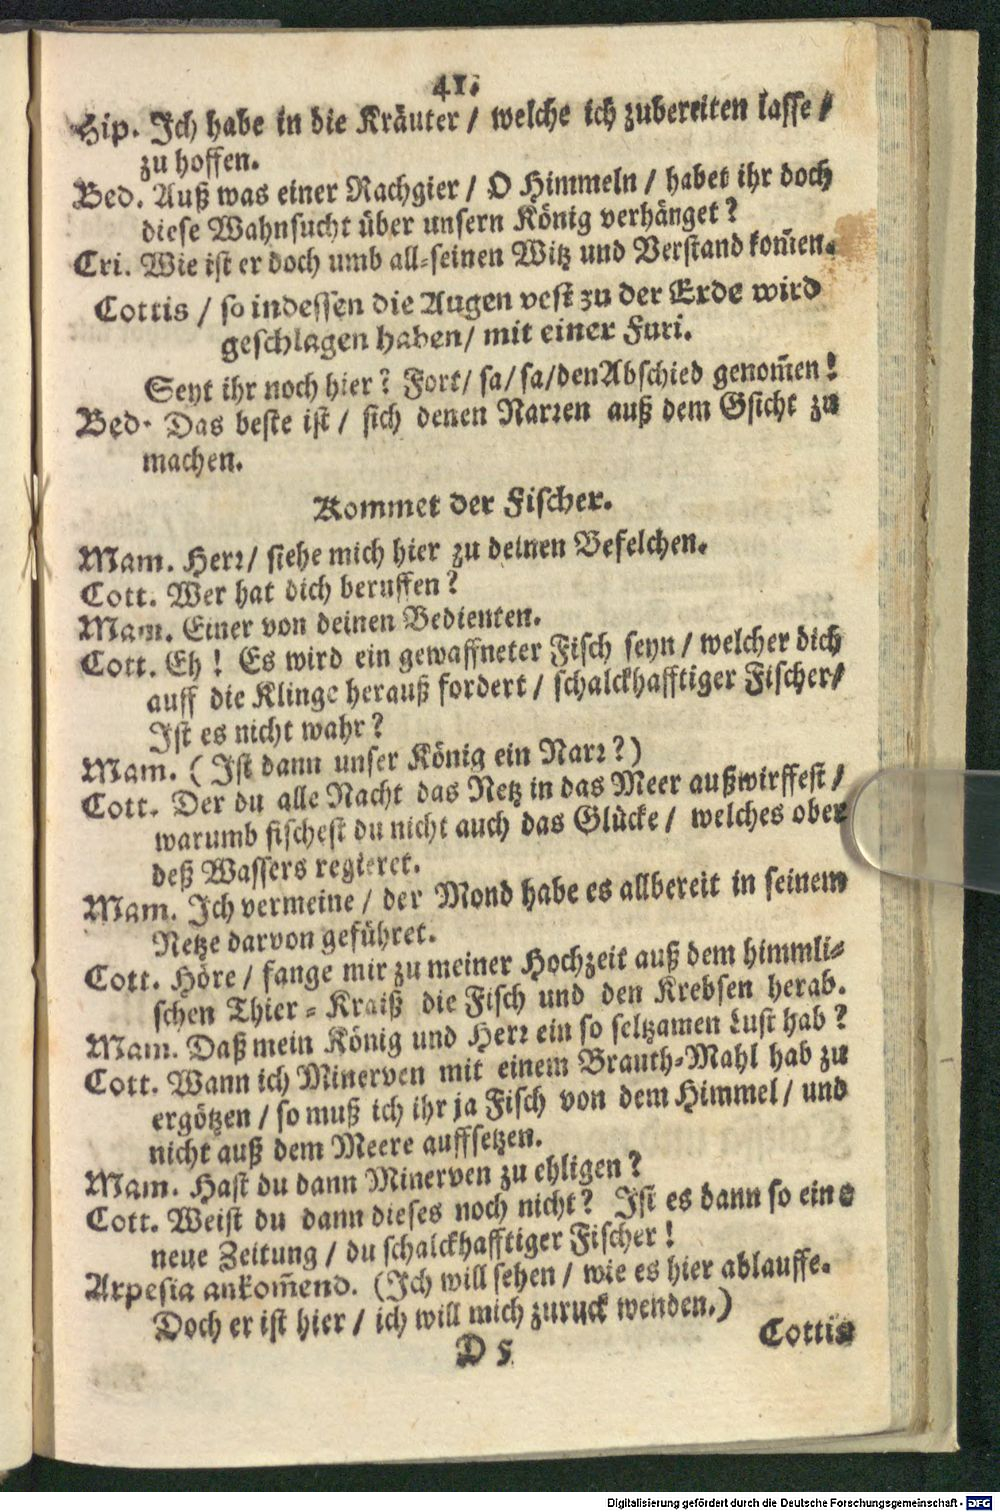 41.
Hip. Ich habe in die Kräuter / welche ich zubereiten lasse /
zu hoffen.
Bed. Auß was einer Rachgier / O Himmeln / habet ihr doch
diese Wahnsucht über unsern König verhänget?
Cri. Wie ist er doch umb all-seinen Witz und Verstand kom̃en.
Cottis / so indessen die Augen vest zu der Erde wird
geschlagen haben / mit einer Furi.
Seyt ihr noch hier? Fort / sa / sa / den Abschied genom̃en!
Bed. Das beste ist / sich denen Narꝛen auß dem Gsicht zu
machen.
Kommet der Fischer.
Mam. Herꝛ / siehe mich hier zu deinen Befelchen.
Cott. Wer hat dich beruffen?
Mam. Einer von deinen Bedienten.
Cott. Eh! Es wird ein gewaffneter Fisch seyn / welcher dich
auff die Klinge herauß fordert / schalckhafftiger Fischer /
Ist es nicht wahr?
Mam. (Ist dann unser König ein Narꝛ?)
Cott. Der du alle Nacht das Netz in das Meer außwirffest /
warumb fischest du nicht auch das Glücke / welches ober
deß Wassers regieret.
Mam. Ich vermeine / der Mond habe es allbereit in seinem
Netze darvon geführet.
Cott. Höre / fange mir zu meiner Hochzeit auß dem himmli-
schen Thier-Kraiß die Fisch und den Krebsen herab.
Mam. Daß mein König und Herꝛ ein so seltzamen Lust hab?
Cott. Wann ich Minerven mit einem Brauth-Mahl hab zu
ergötzen / so muß ich ihr ja Fisch von dem Himmel / und
nicht auß dem Meere auffsetzen.
Mam. Hast du dann Minerven zu ehligen?
Cott. Weist du dann dieses noch nicht? Ist es dann so eine
neue Zeitung / du schalckhafftiger Fischer!
Arpesia ankom̃end. (Ich will sehen / wie es hier ablauffe.
Doch er ist hier / ich will mich zuruck wenden.)
D 5
Cottis
Digitalisierung gefördert durch die Deutsche Forschungsgemeinschaft - DFG